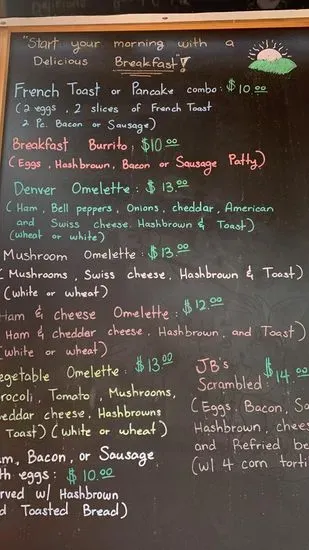 "Start your morning with a
Delicious Breakfast"!
French Toast or Pancake combo: $10.00
(2 eggs, 2 slices of French Toast
2 Pc. Bacon or Sausage)
Breakfast Burrito: $10.00
(Eggs, Hashbrown, Bacon or Sausage Patty)
Denver Omelette: $13.00
(Ham, Bell peppers, Onions, cheddar, American
and Swiss cheese. Hashbrown & Toast)
(wheat or white)
Mushroom Omelette: $13.00
(Mushrooms, Swiss cheese, Hashbrown & Toast)
(white or wheat)
Ham & cheese Omelette: $12.00
Ham & cheddar cheese, Hashbrown, and Toast)
(white or wheat)
egetable Omelette: $13.00
rocoli, Tomato, Mushrooms,
eddar cheese, Hashbrowns
Toast) (white or wheat)
am, Bacon, or Sausage
th eggs: $10.00
rved w/ Hashbrown
d Toasted Bread)
JB's
Scrambled: $14.00
(Eggs, Bacon, Sa
Hashbrown, chees
and Refried be
(w/ 4 corn torti